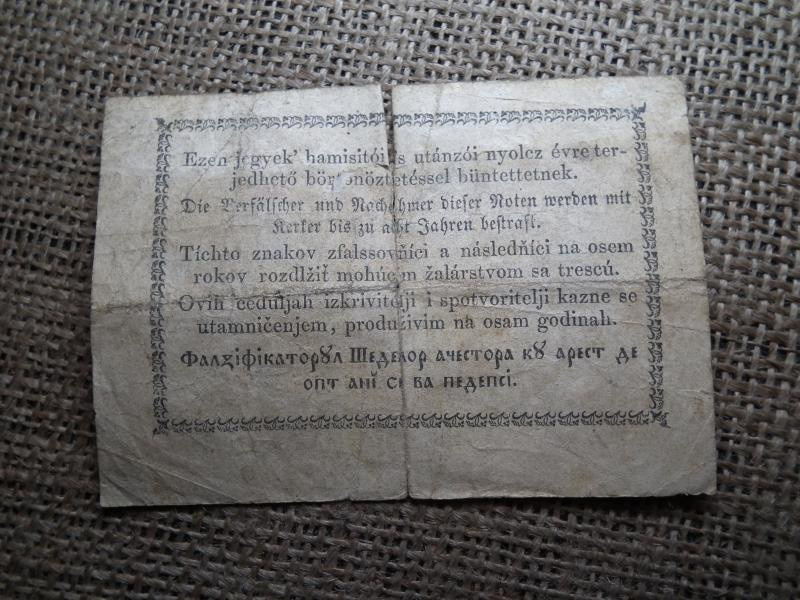 Ezen jegyek' hamisitói s utánzói nyolcz évre ter-
jedhető börtönöztetéssel büntettetnek.
Die Verfälscher und Nachahmer dieser Noten werden mit
Kerker bis zu acht Jahren bestraft.
Tíchto znakov zfalssovňíci a následňíci na osem
rokov rozdlžiť mohúcim žalárstvom sa trescú.
Ovih ceduljah izkrivitelji i spotvoritelji kazne se
utamničenjem, produživim na osam godinah.
Фалцїфікаторꙋл Шеделор ачестора кꙋ арест де
опт анї се ва педепсі.